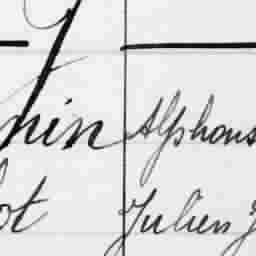 nin Alphons
ot Julien J